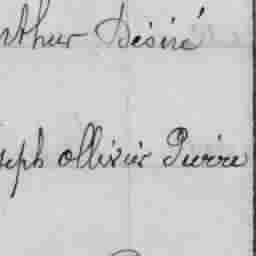 rthur Désiré
seph ollivier Pierre